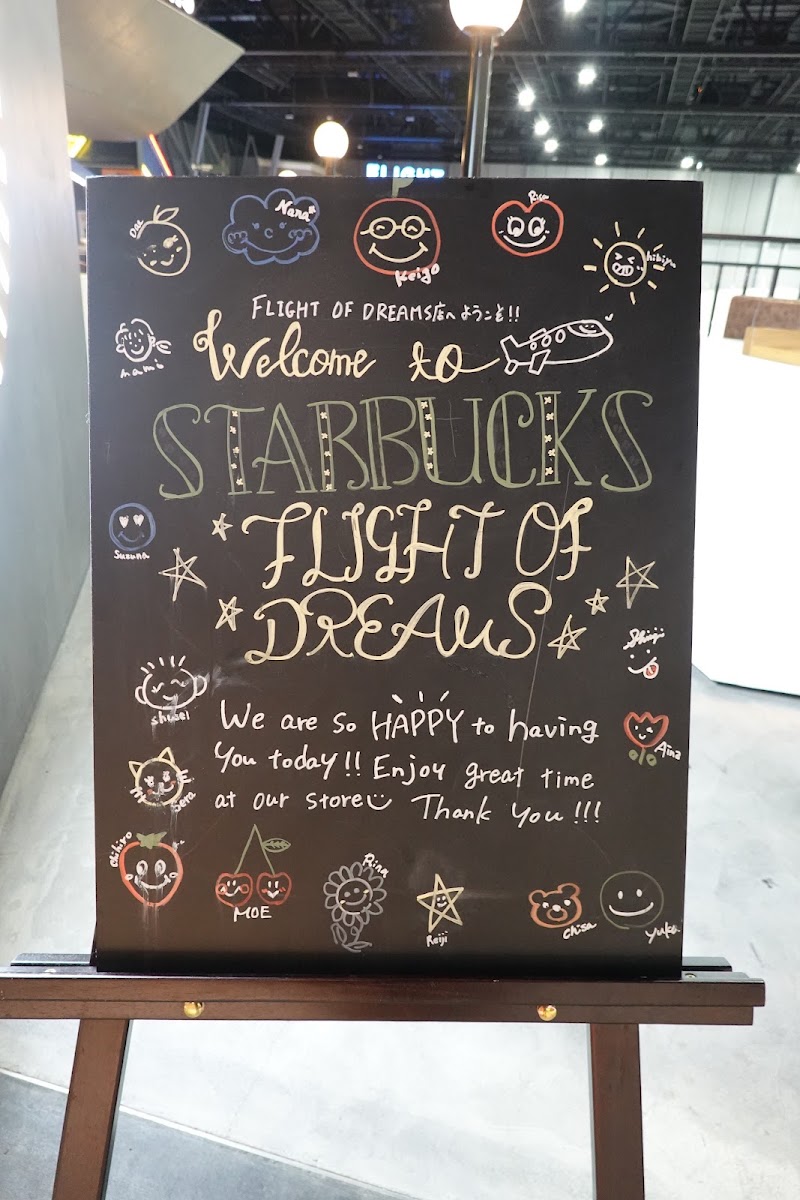 Nana
Rio
Keigo
FLIGHT OF DREAMS店へようこそ!!
Welcome to
mami
STARBUCKS
FLIGHT OF
DREAMS
Suzuna
Shinji
shusei
We are so HAPPY to having
You today!! Enjoy great time
at our store Thank you!!!
Aina
Sera
Chihiro
MOE
Rina
Reiji
chisa
yuka